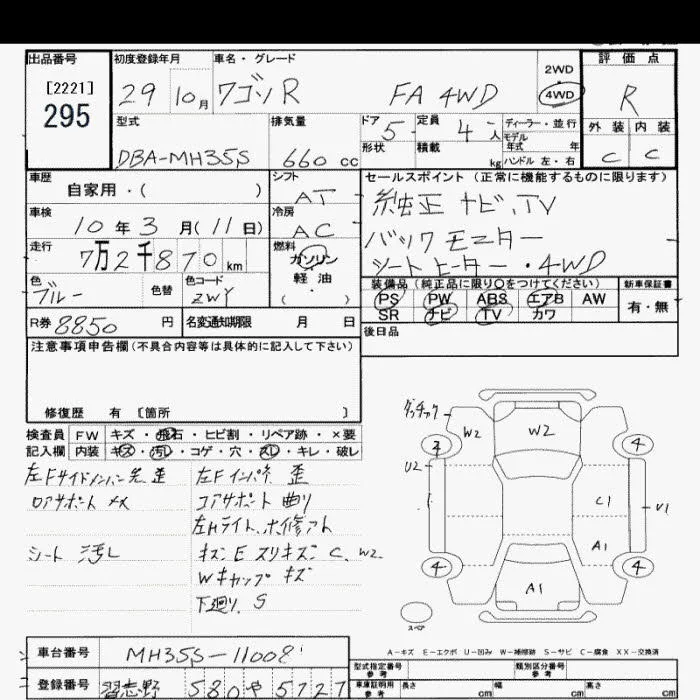 出品番号 初度登録年月 車名・グレード 評価点
[2221]
295
29 10月 ワゴンR FA 4WD
2WD
4WD
R
型式 排気量 ドア 定員 ディーラー・並行 外装 内装
DBA-MH35S 660 cc 5 4人 モデル年式 年
形状 積載 kg ハンドル 左・右 C C
車歴 シフト セールスポイント (正常に機能するものに限ります)
自家用・( ) AT 純正ナビ、TV
車検 冷房
10年3月(11日) AC バックモニター
走行 燃料
7万2千870km ガソリン シートヒーター・4WD
色 色替 色コード 軽油 装備品 (純正品に限り○をつけてください) 新車保証書
ブルー ZWY ・( ) PS PW ABS エアB AW 有・無
SR ナビ TV カワ
R券 8850円 名変通知期限 月 日 後日品
注意事項申告欄(不具合内容等は具体的に記入して下さい)
修復歴 有 〔箇所 〕
検査員 FW キズ・飛石・ヒビ割・リペア跡・×要
記入欄 内装 キズ・汚レ・コゲ・穴・スレ・キレ・破レ
左Fサイドメンバー先歪 左Fインパネ歪
ロアサポート メメ コアサポート曲り
左Hライト、ホ修アト
シート汚レ キズ E スリキズ C、W2
Wキャップキズ
下廻り、S
W2 W2
4 4
U2
C1 U1
A1
4 4
A1
スペア
A-キズ E-エクボ U-凹み W-補修跡 S-サビ C-腐食 XX-交換済
車台番号 MH35S-11008
型式指定番号 参考 類別区分番号 参考
登録番号 習志野 580 や 5727
車庫証明用 参考 長さ cm 幅 cm 高さ cm